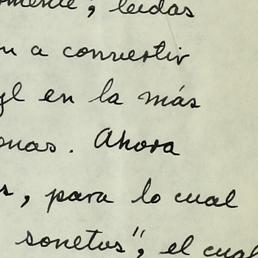 omente, leídas
n a convertir
yl en la más
onas. Ahora
s, para lo cual
sonetos", el cual